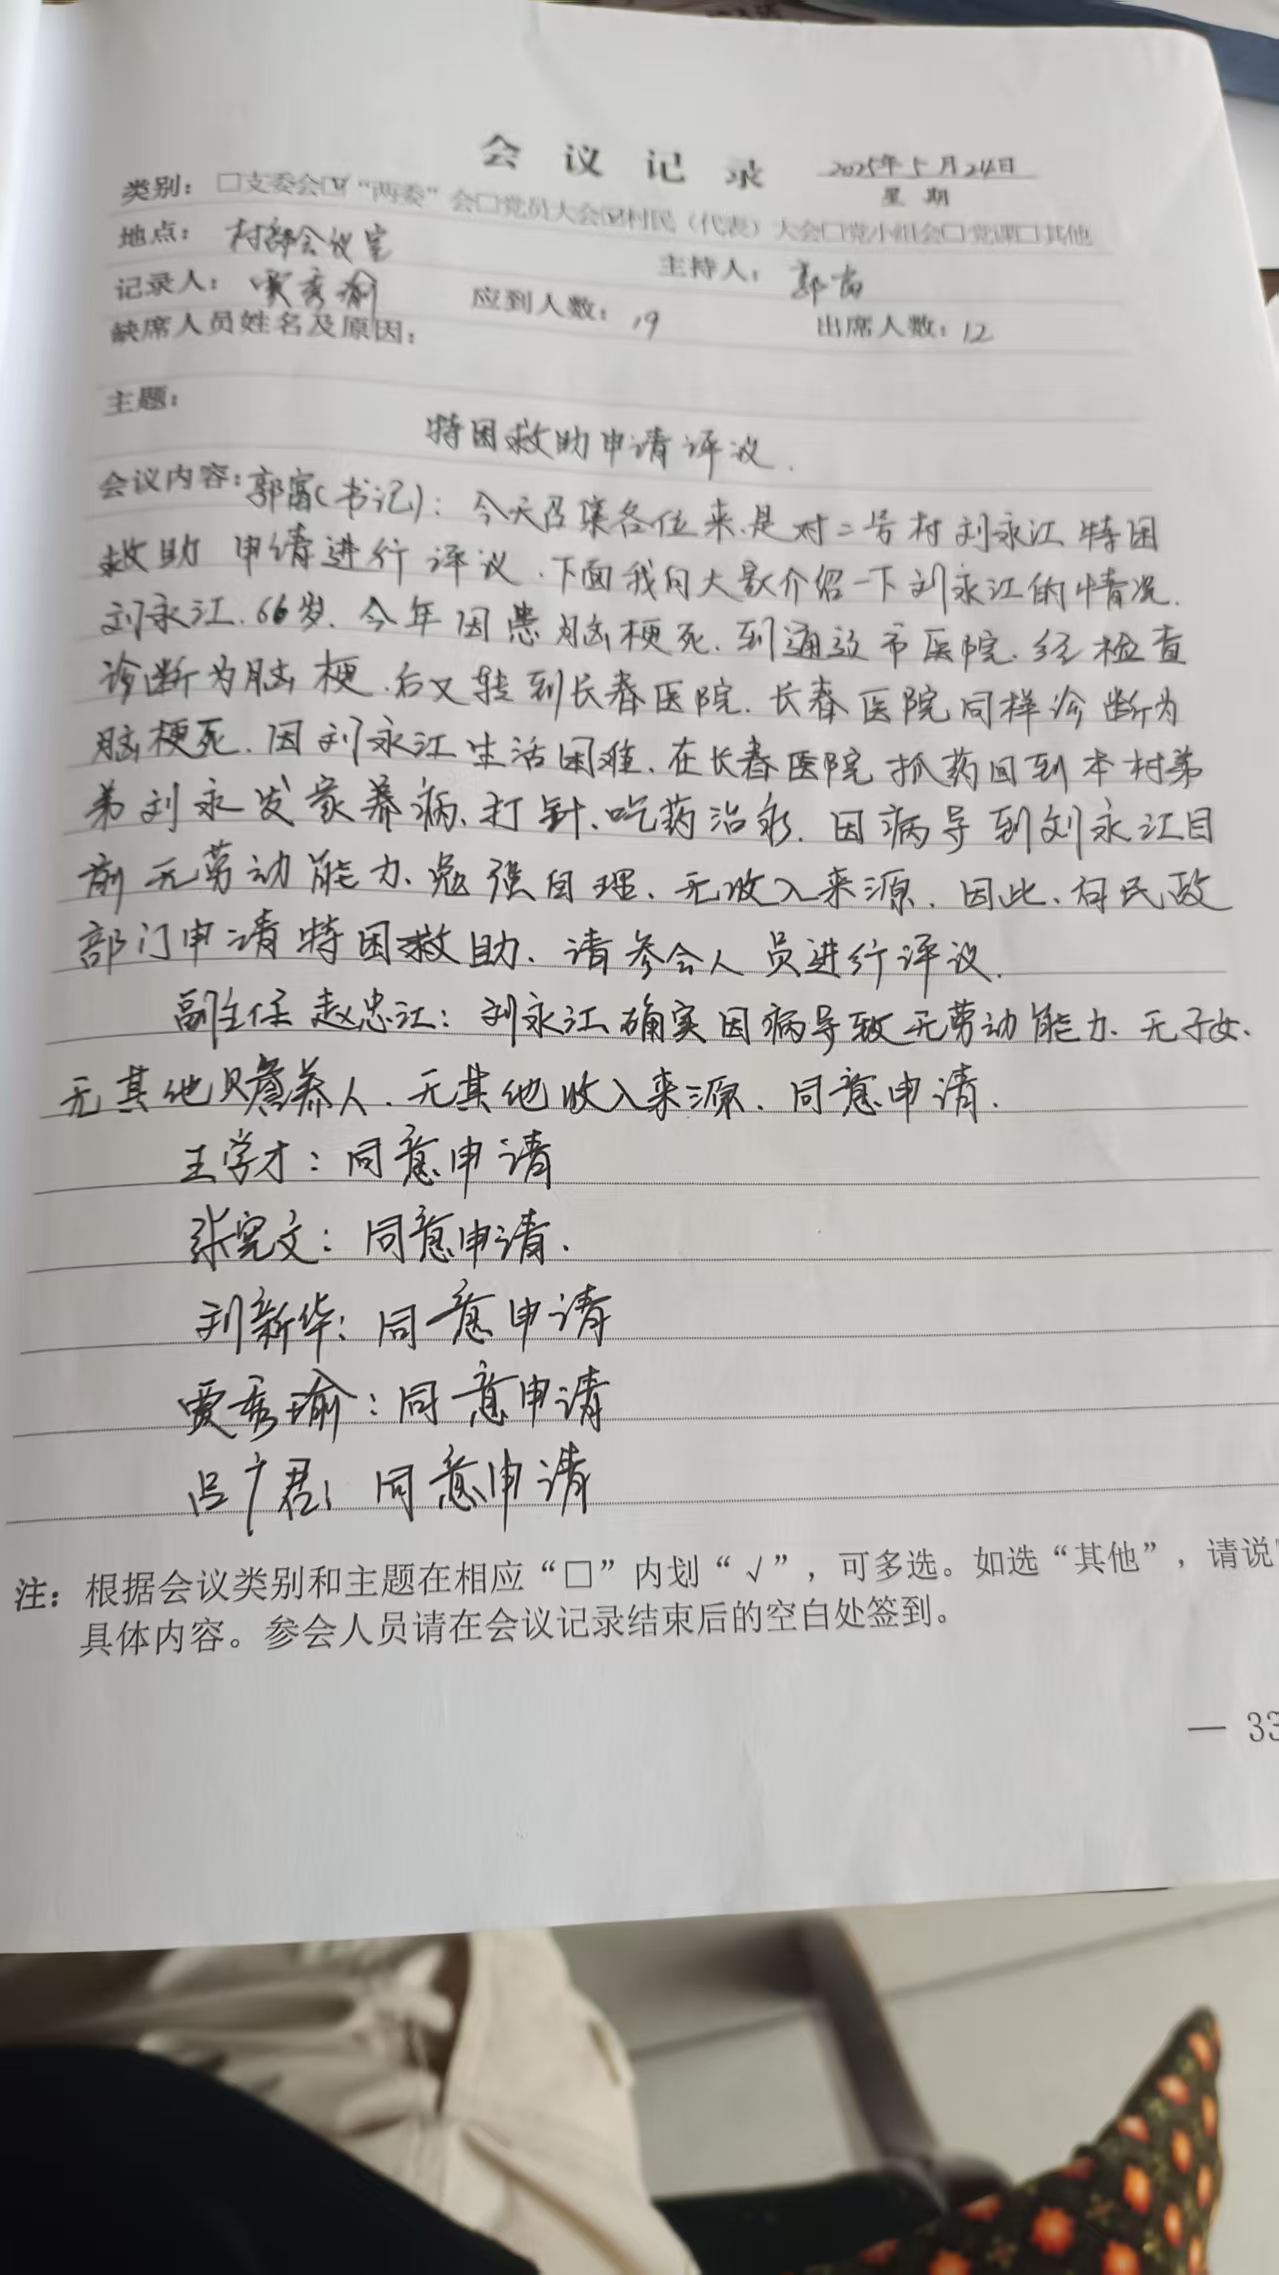 会议记录 2025年5月24日
星期
类别：□支委会☑“两委”会□党员大会☑村民（代表）大会□党小组会□党课□其他
地点：村部会议室
主持人：郭富
记录人：贾秀瑜 应到人数：19 出席人数：12
缺席人员姓名及原因：
主题：
特困救助申请评议.
会议内容：郭富（书记）：今天召集各位来，是对二号村刘永江特困
救助申请进行评议.下面我向大家介绍一下刘永江的情况.
刘永江.66岁.今年因患脑梗死.到通辽市医院.经检查
诊断为脑梗.后又转到长春医院.长春医院同样诊断为
脑梗死.因刘永江生活困难、在长春医院抓药回到本村弟
弟刘永发家养病、打针、吃药治疗.因病导到刘永江目
前无劳动能力、勉强自理、无收入来源.因此、在民政
部门申请特困救助、请参会人员进行评议.
副主任赵忠江：刘永江确实因病导致无劳动能力、无子女、
无其他赡养人、无其他收入来源、同意申请.
王学才：同意申请
张宪文：同意申请.
刘新华：同意申请
贾秀瑜：同意申请
吕广君：同意申请
注：根据会议类别和主题在相应“□”内划“√”，可多选。如选“其他”，请说
具体内容。参会人员请在会议记录结束后的空白处签到。
— 33